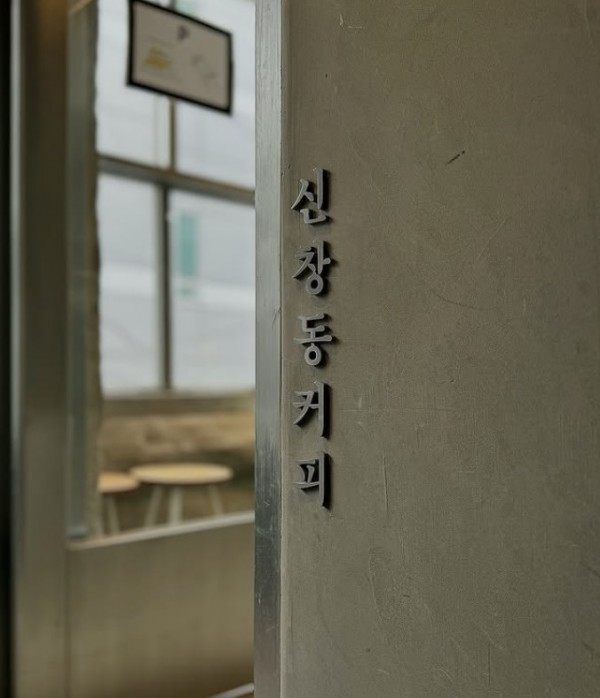 신창동커피
P